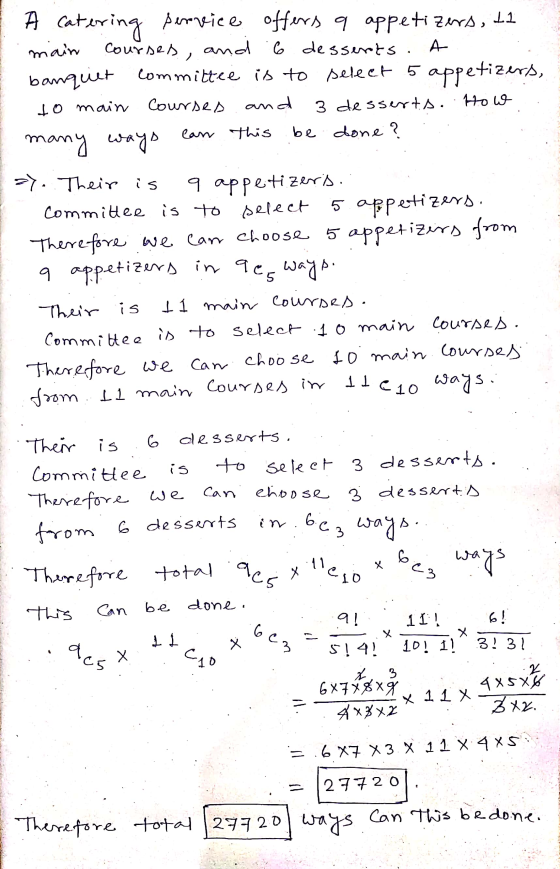 A catering service offers 9 appetizers, 11
main courses, and 6 desserts. A
banquet committee is to select 5 appetizers,
10 main courses and 3 desserts. How
many ways can this be done?
=>. Their is 9 appetizers.
Committee is to select 5 appetizers.
Therefore we can choose 5 appetizers from
9 appetizers in 9c5 ways.
Their is 11 main courses.
Committee is to select 10 main courses.
Therefore we can choose 10 main courses
from 11 main courses in 11c10 ways.
Their is 6 desserts.
Committee is to select 3 desserts.
Therefore we can choose 3 desserts
from 6 desserts in 6c3 ways.
Therefore total 9c5 x 11c10 x 6c3 ways
This can be done.
. 9c5 x 11c10 x 6c3 = 9!/5!4! x 11!/10!1! x 6!/3!3!
= 6x7x8x9/4x3x2 x 11 x 4x5x6/3x2.
= 6x7x3x11x4x5
= 27720.
Therefore total 27720 ways can this be done.